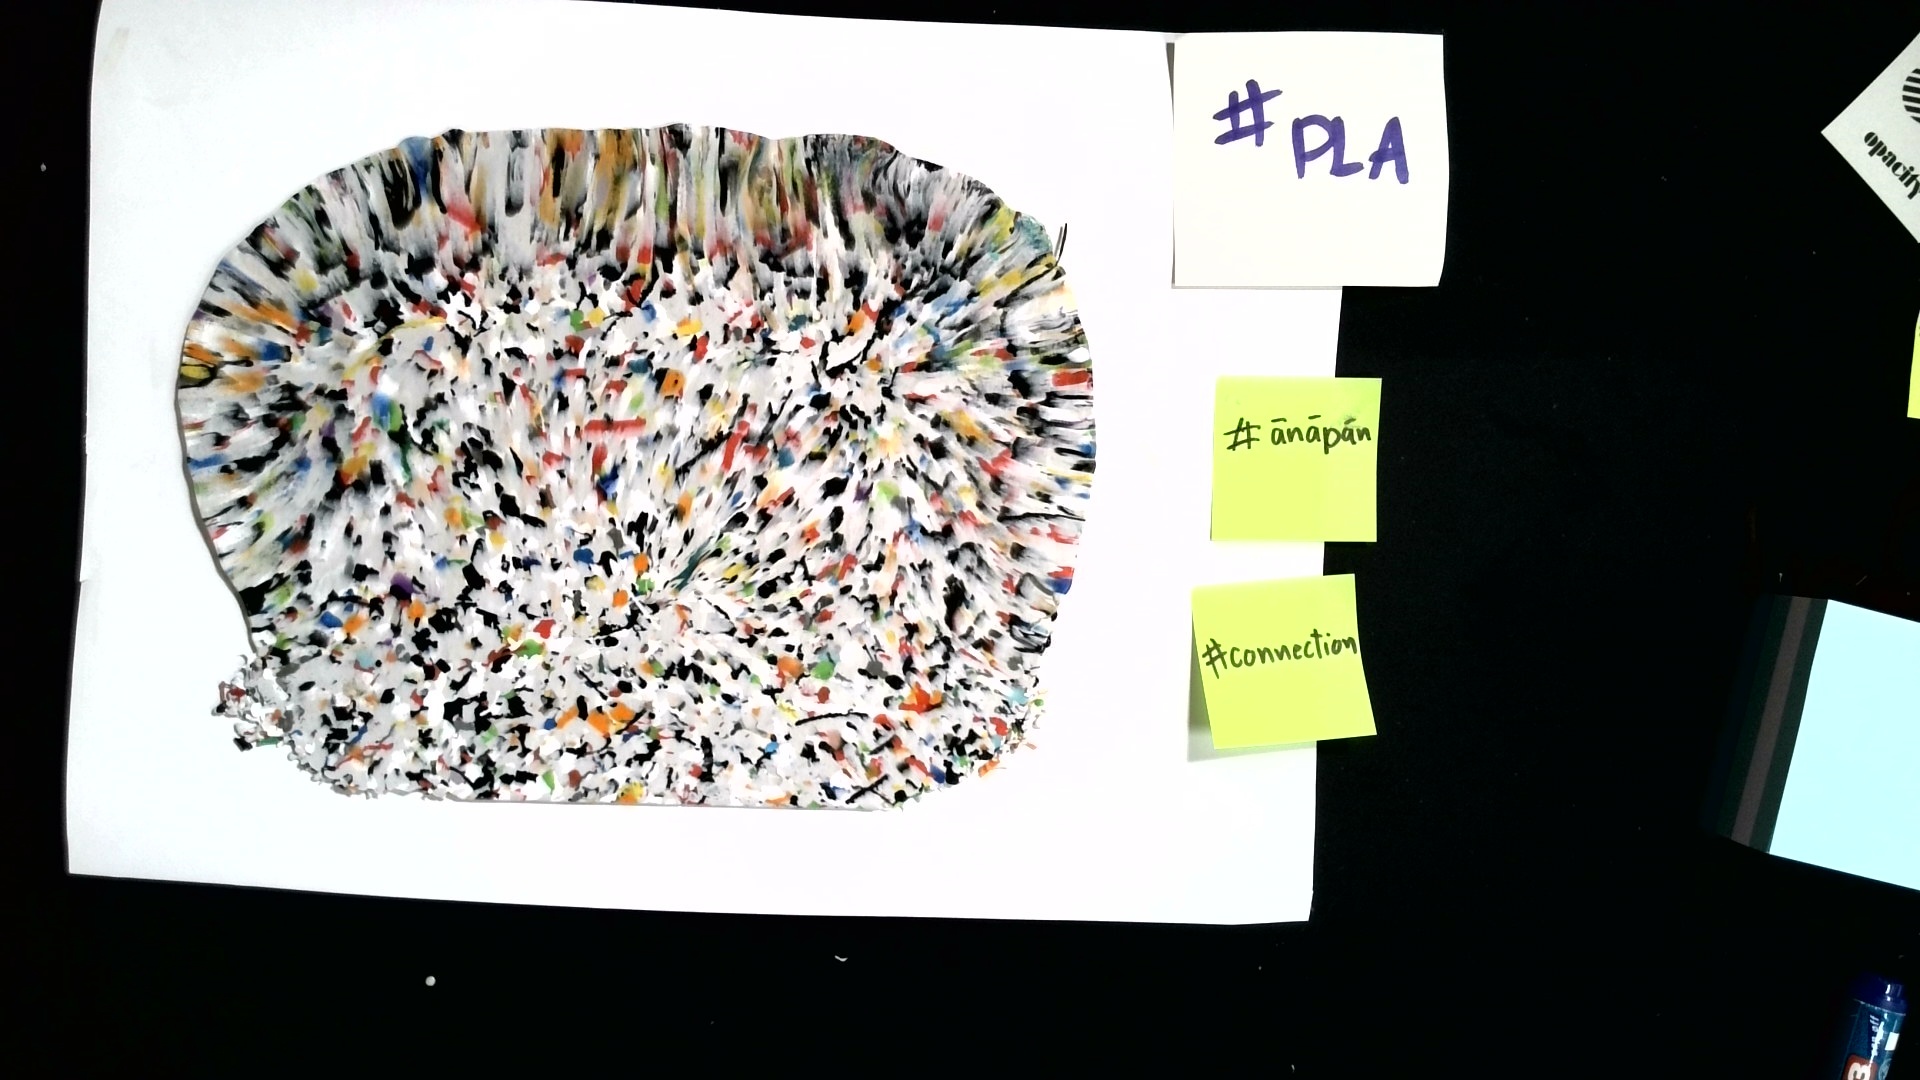 # PLA
# ānāpān
#connection
opacity